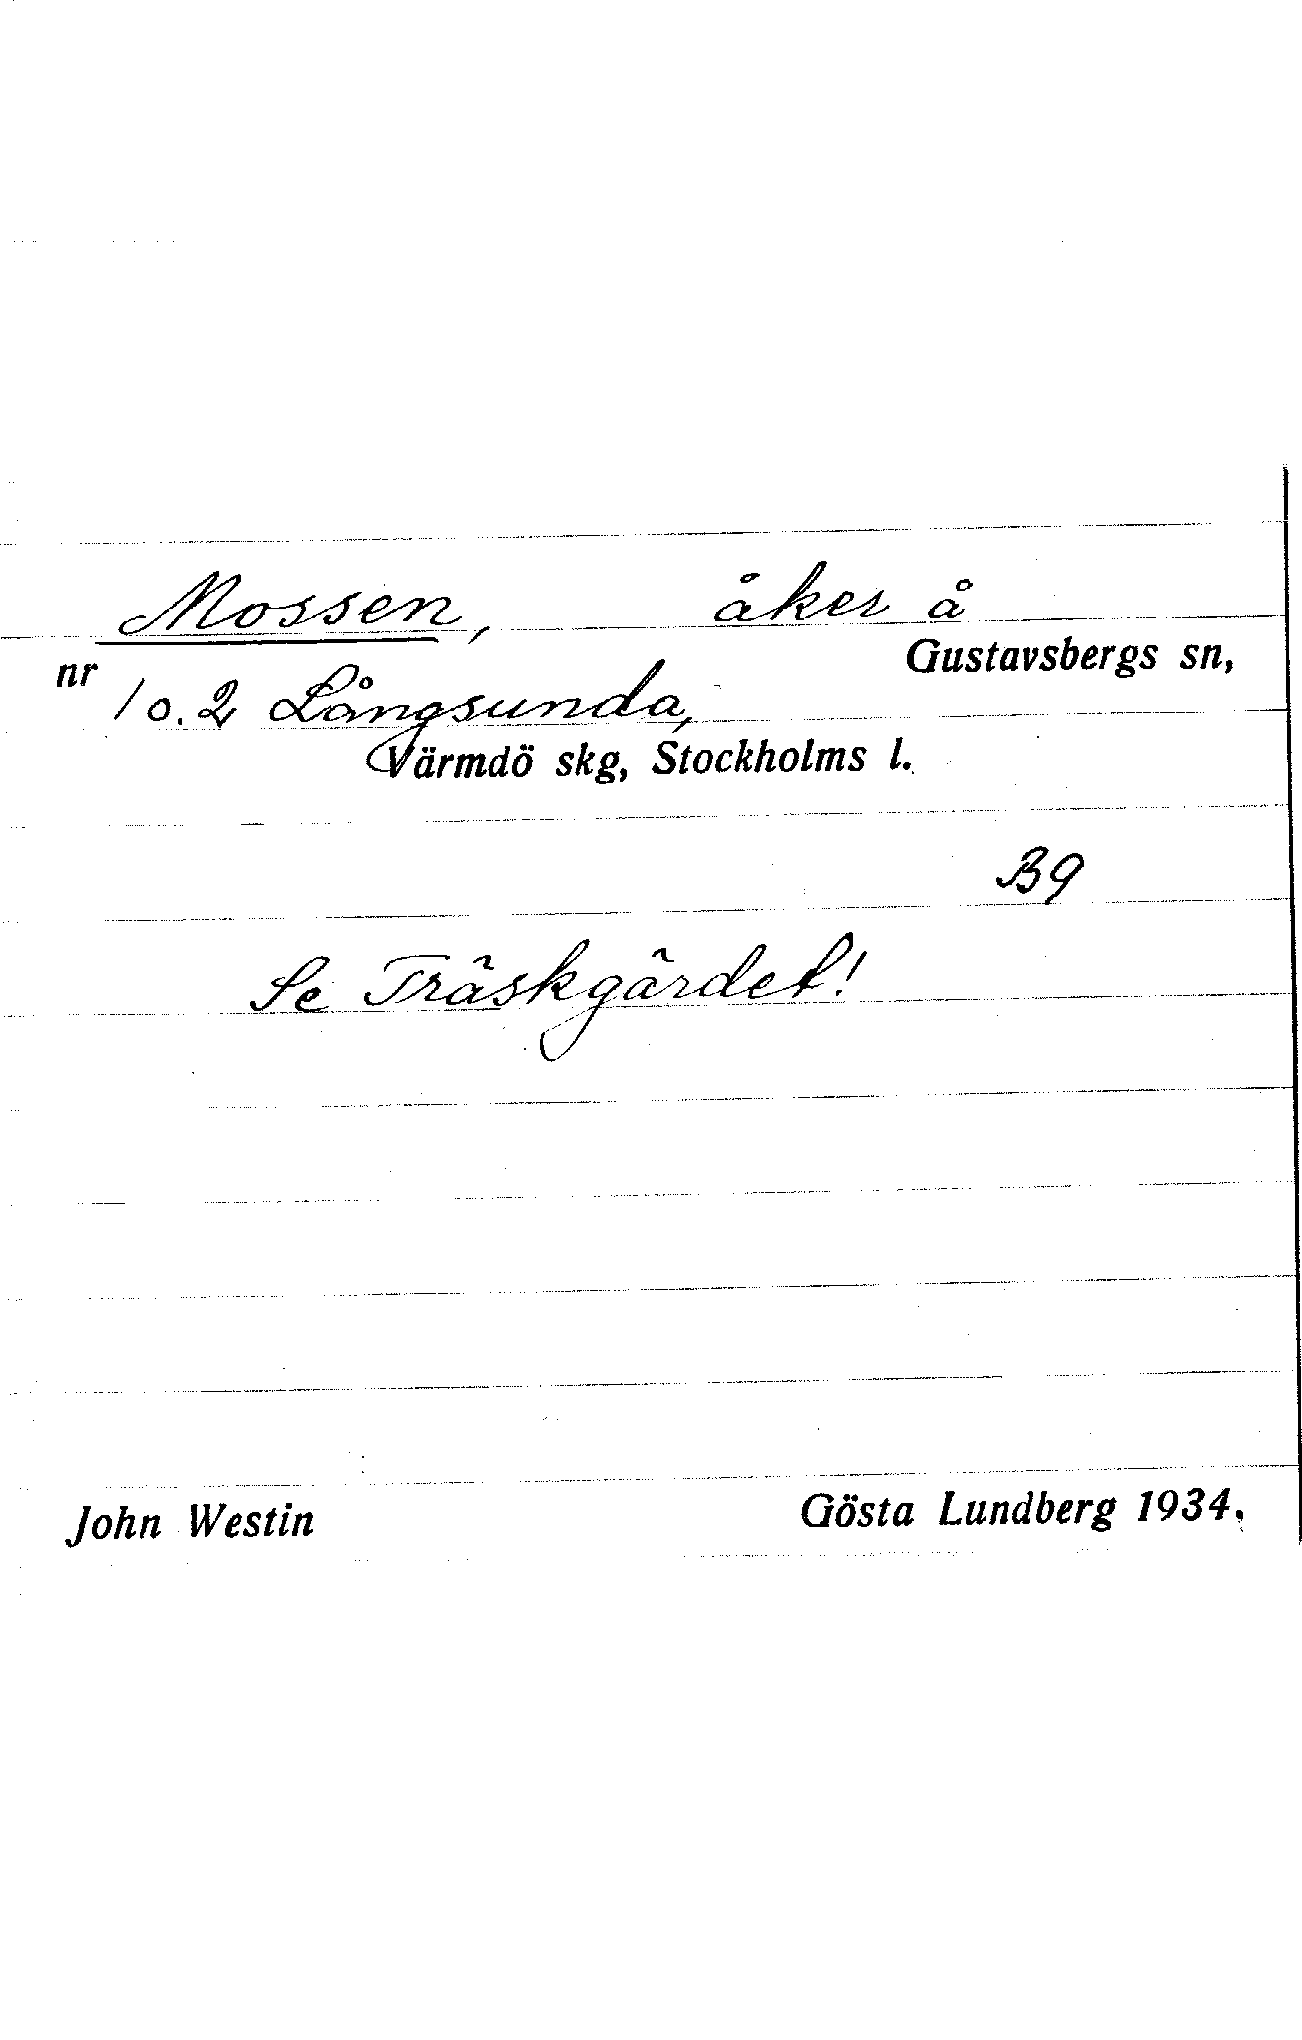 Mossen, åker å
Gustavsbergs sn,
nr 1 o. 2 Långsunda,
Värmdö skg, Stockholms l.
B9
Se Träskgärdet!
John Westin Gösta Lundberg 1934.